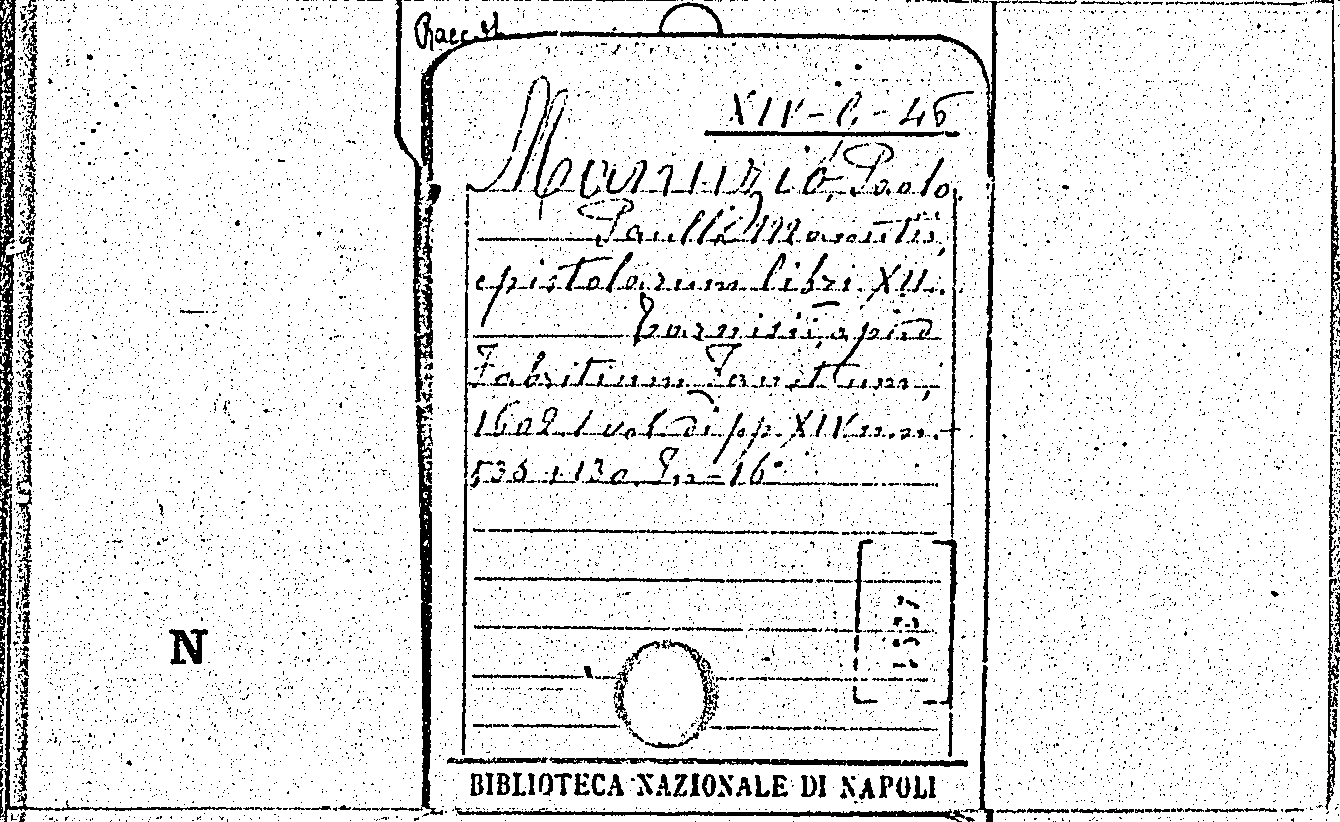 Racc. Vl.
XIV-C.-46
Manuzio, Paolo.
Paulli Manutii,
epistolarum libri XII.
Tarvisii, apud
Fabritium Zanettum,
1602 1 vol di pp. XIV n.n.
535 + 130. In-16°
N
BIBLIOTECA NAZIONALE DI NAPOLI